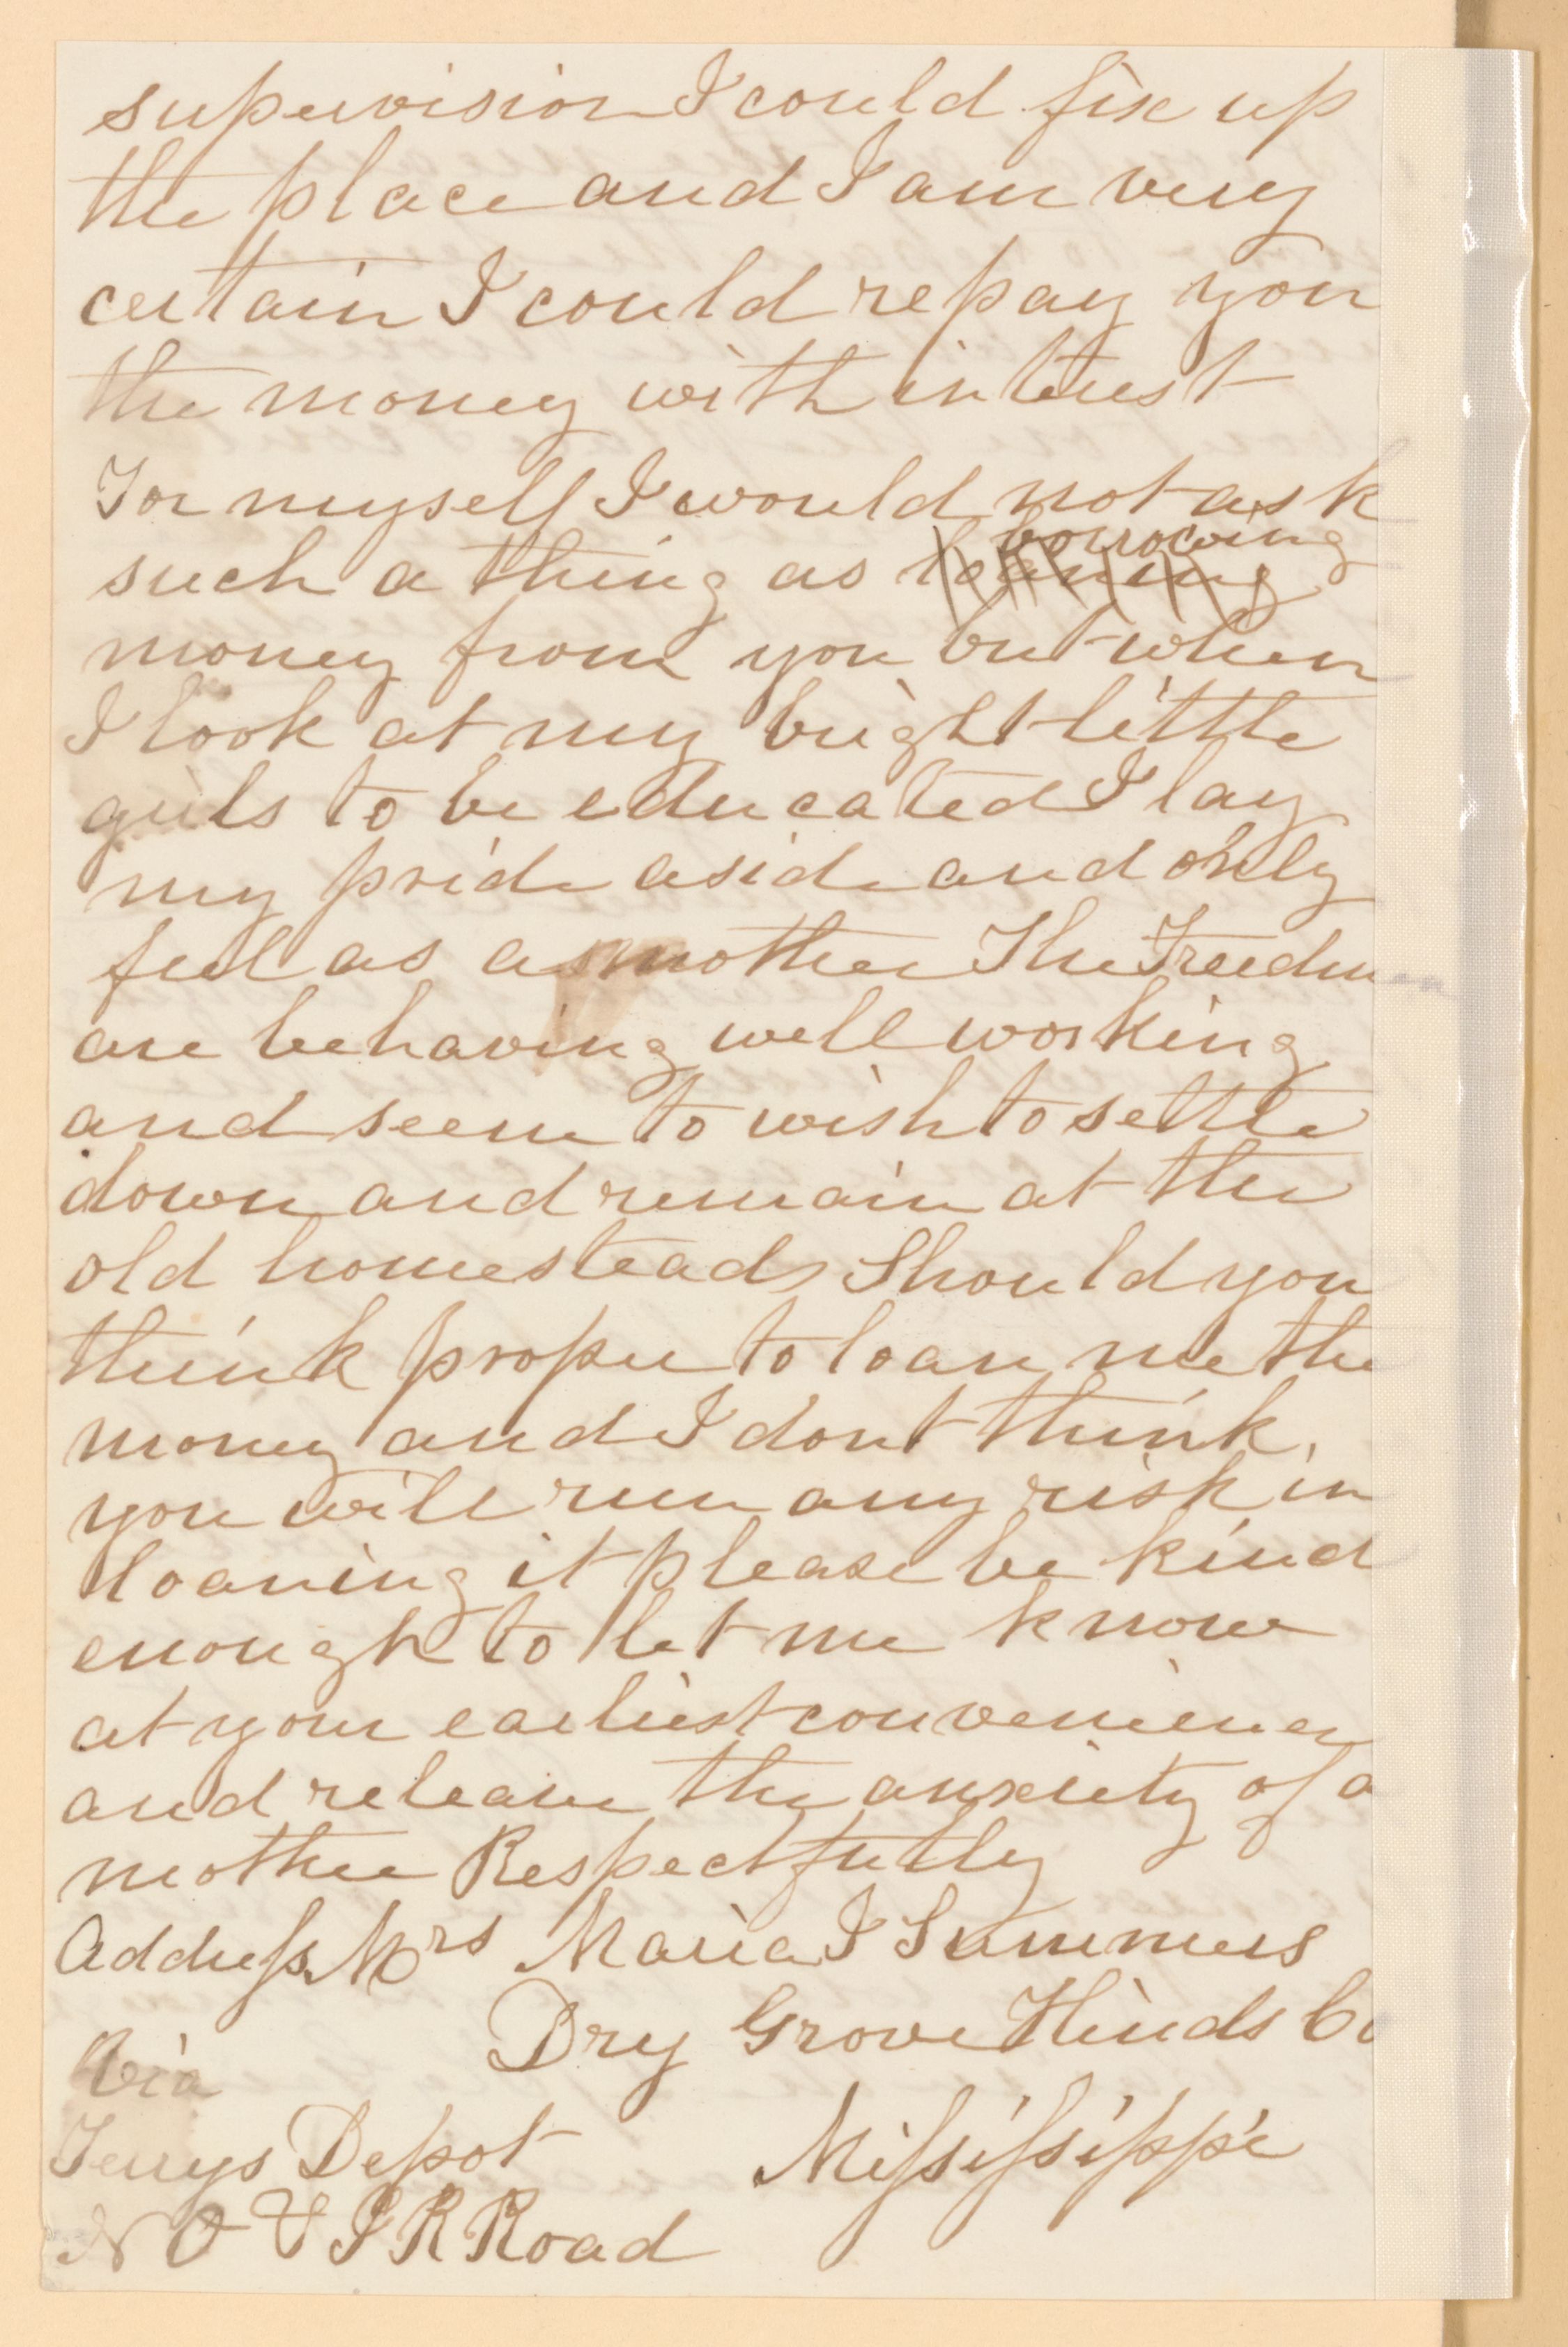 supervision I could fix up
the place and I am very
certain I could repay you
the money with interest
For myself I would not ask
borrowing
such a thing as loaning
money from you but when
I look at my bright little
girls to be educated I lay
my pride aside and only
feel as a mother The Freedmen
are behaving well working
and seem to wish to settle
down and remain at the
old homestead, Should you
think proper to loan me the
money and I dont think,
you will run any risk in
loaning it please be kind
enough to let me know
at your earliest convenience
and releave the anxiety of a
mother Respectfully
Address Mrs Maria I Summers
Dry Grove Hinds Co
Via
Terrys Depot Mississippi
N O & J R Road